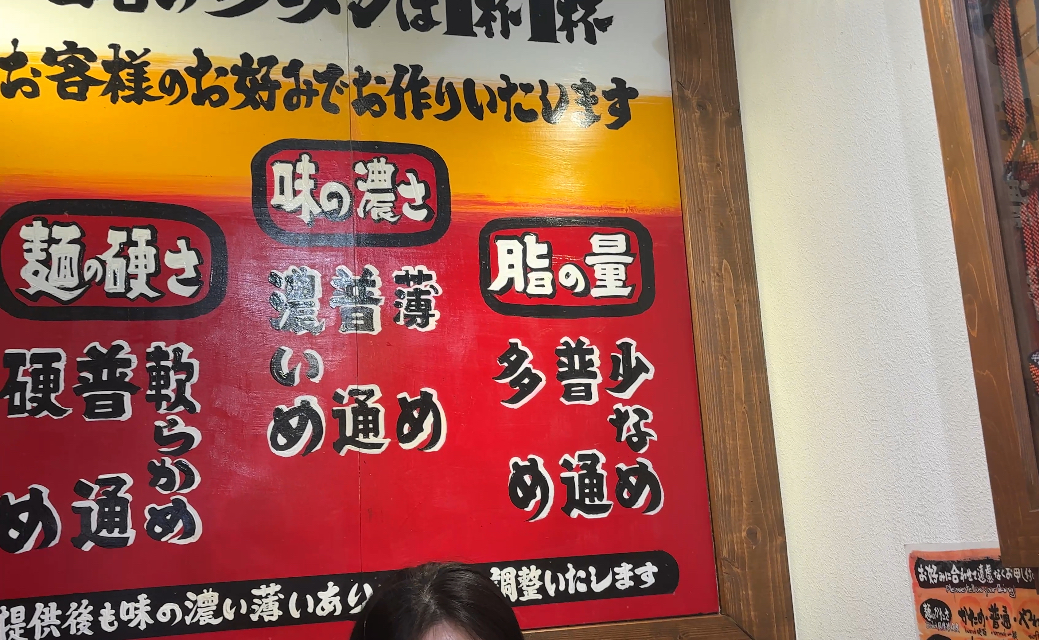 ラーメンは1杯1杯
お客様のお好みでお作りいたします
味の濃さ
薄め
普通
濃いめ
麺の硬さ
軟らかめ
普通
硬め
脂の量
少なめ
普通
多め
提供後も味の濃い薄いあり
調整いたします
お好みに合わせて遠慮なくお申し
かため・普通・や